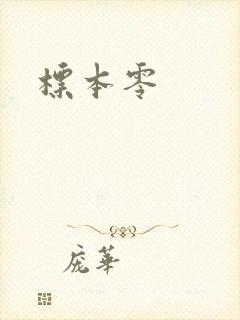 標本零
庞華